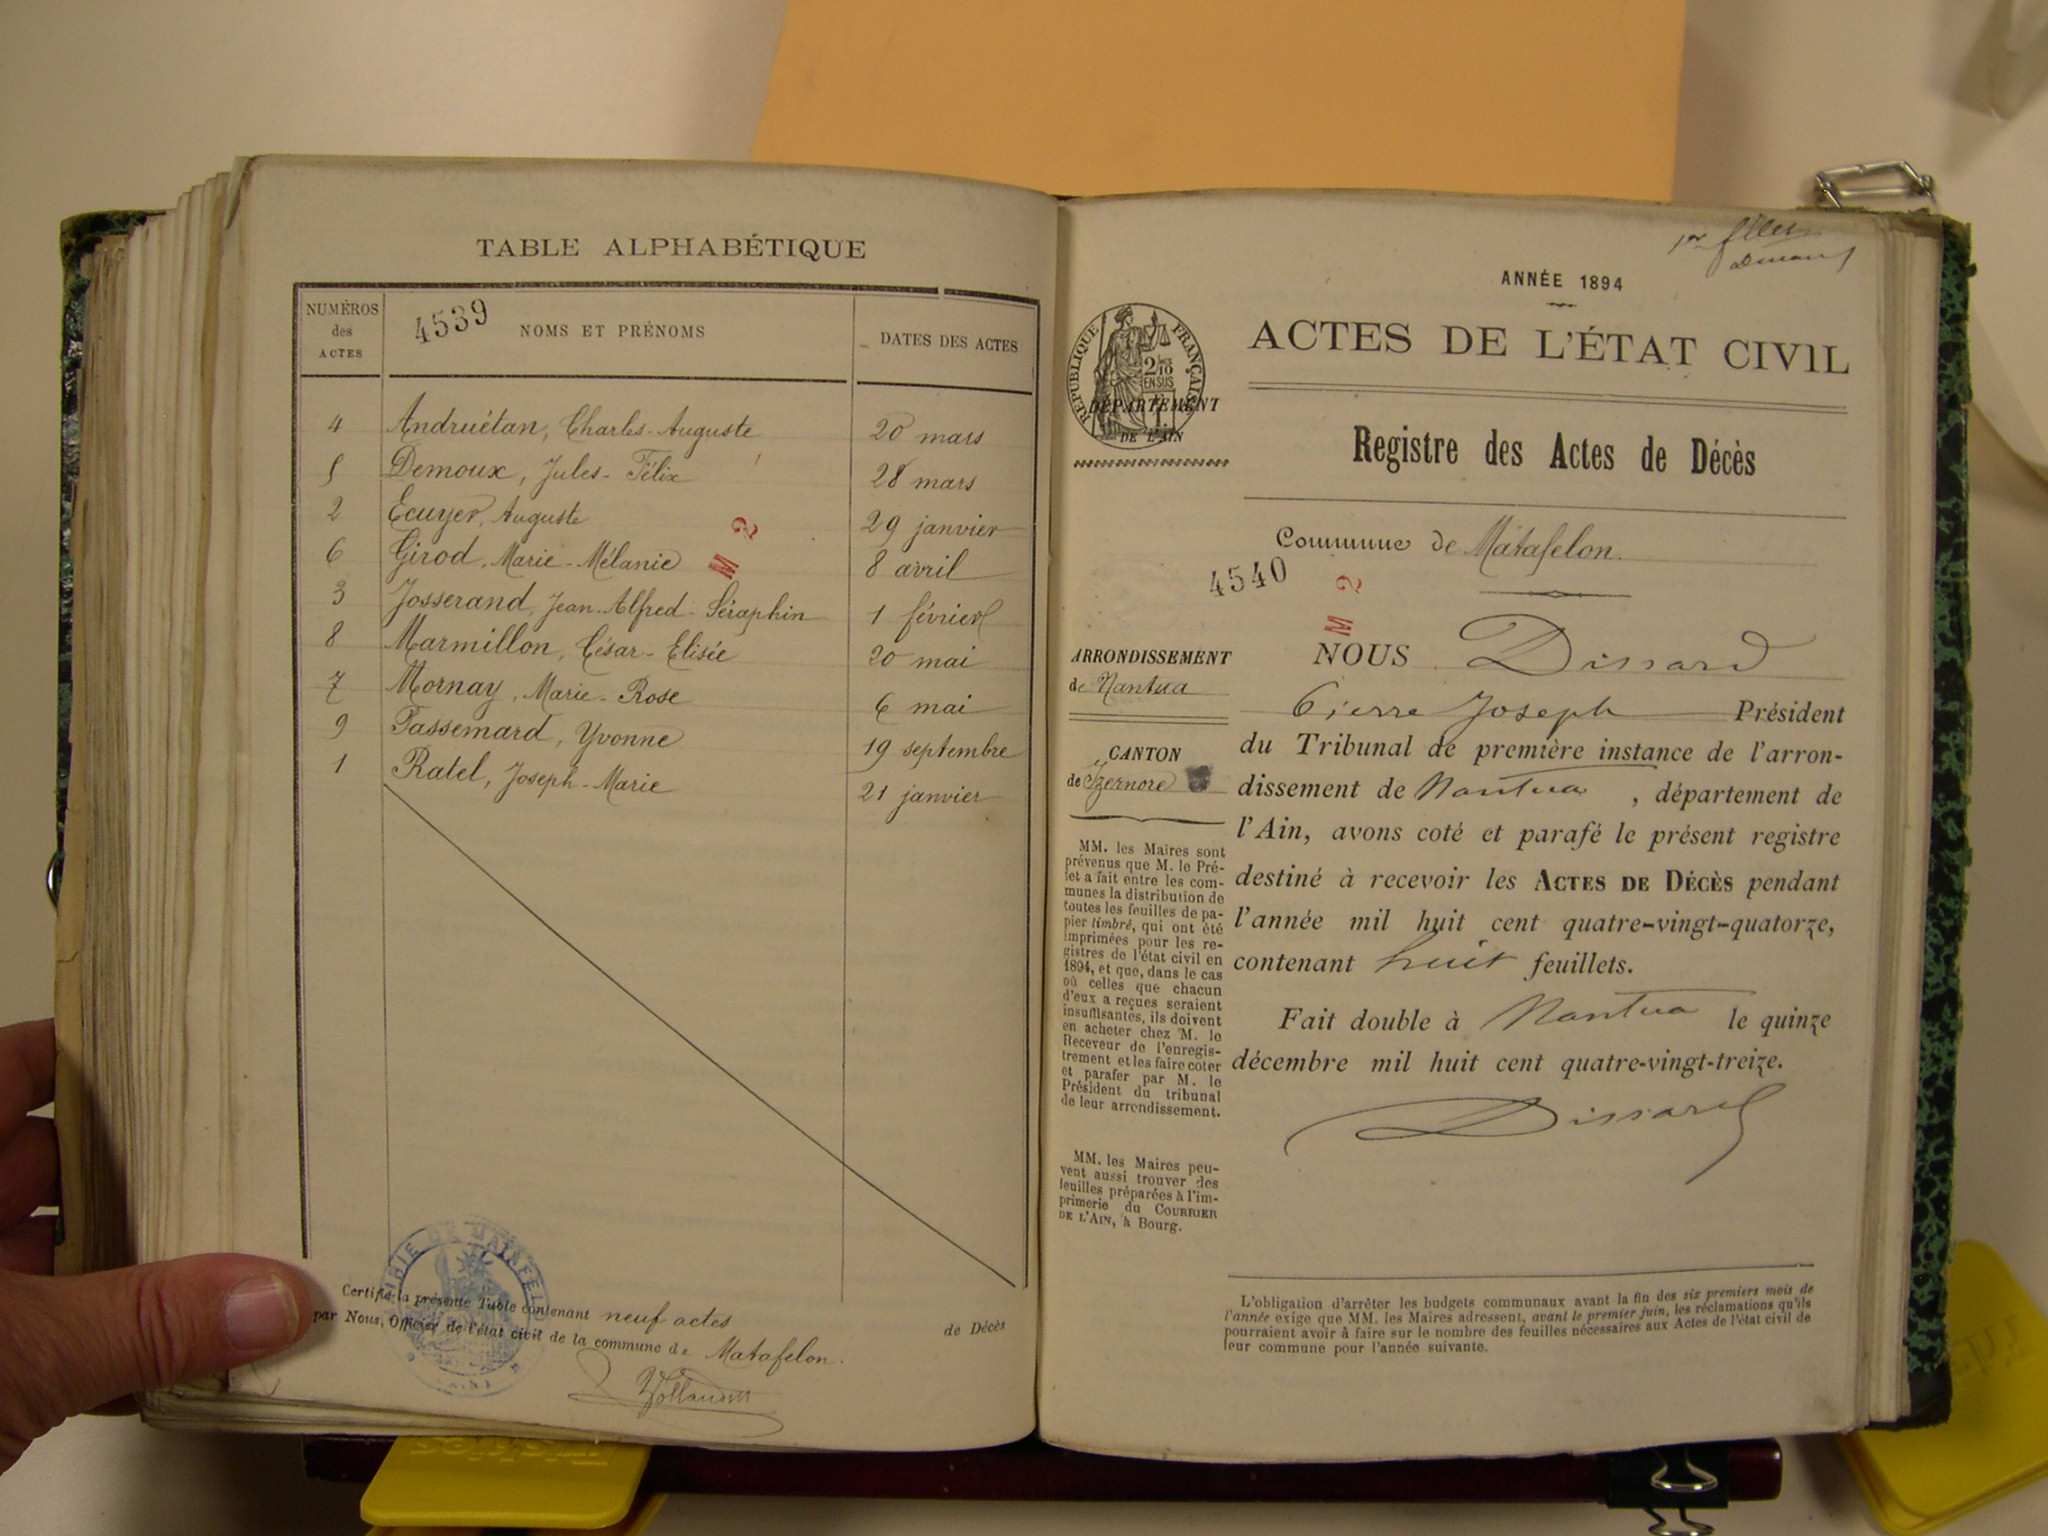 TABLE ALPHABÉTIQUE
NUMÉROS
des
ACTES
4539
NOMS ET PRÉNOMS
DATES DES ACTES
4 Andruétan, Charles-Auguste 20 mars
5 Demoux, Jules-Félix 28 mars
2 Ecuyer, Auguste 29 janvier
6 Girod, Marie-Mélanie 8 avril
3 Josserand, Jean-Alfred-Séraphin 1 février
8 Marmillon, César-Elisée 20 mai
7 Mornay, Marie-Rose 6 mai
9 Passemard, Yvonne 19 septembre
1 Ratel, Joseph-Marie 21 janvier
M 2
Certifié la présente Table contenant neuf actes de Décès
par Nous, Officier de l'état civil de la commune de Matafelon.
MAIRIE DE MATAFELON
ANNÉE 1894
ACTES DE L'ÉTAT CIVIL
RÉPUBLIQUE FRANÇAISE
2/10
EN SUS
DÉPARTEMENT
DE L'AIN
Registre des Actes de Décès
Commune de Matafelon.
4540
M 2
ARRONDISSEMENT
de Nantua
CANTON
de Izernore
MM. les Maires sont
prévenus que M. le Pré-
fet a fait entre les com-
munes la distribution de
toutes les feuilles de pa-
pier timbré, qui ont été
imprimées pour les re-
gistres de l'état civil en
1894, et que, dans le cas
où celles que chacun
d'eux a reçues seraient
insuffisantes, ils doivent
en acheter chez M. le
Receveur de l'enregis-
trement et les faire coter
et parafer par M. le
Président du tribunal
de leur arrondissement.
MM. les Maires peu-
vent aussi trouver des
feuilles préparées à l'im-
primerie du COURRIER
DE L'AIN, à Bourg.
NOUS Dissard
Pierre Joseph Président
du Tribunal de première instance de l'arron-
dissement de Nantua, département de
l'Ain, avons coté et parafé le présent registre
destiné à recevoir les ACTES DE DÉCÈS pendant
l'année mil huit cent quatre-vingt-quatorze,
contenant huit feuillets.
Fait double à Nantua le quinze
décembre mil huit cent quatre-vingt-treize.
Dissard
L'obligation d'arrêter les budgets communaux avant la fin des six premiers mois de
l'année exige que MM. les Maires adressent, avant le premier juin, les réclamations qu'ils
pourraient avoir à faire sur le nombre des feuilles nécessaires aux Actes de l'état civil de
leur commune pour l'année suivante.